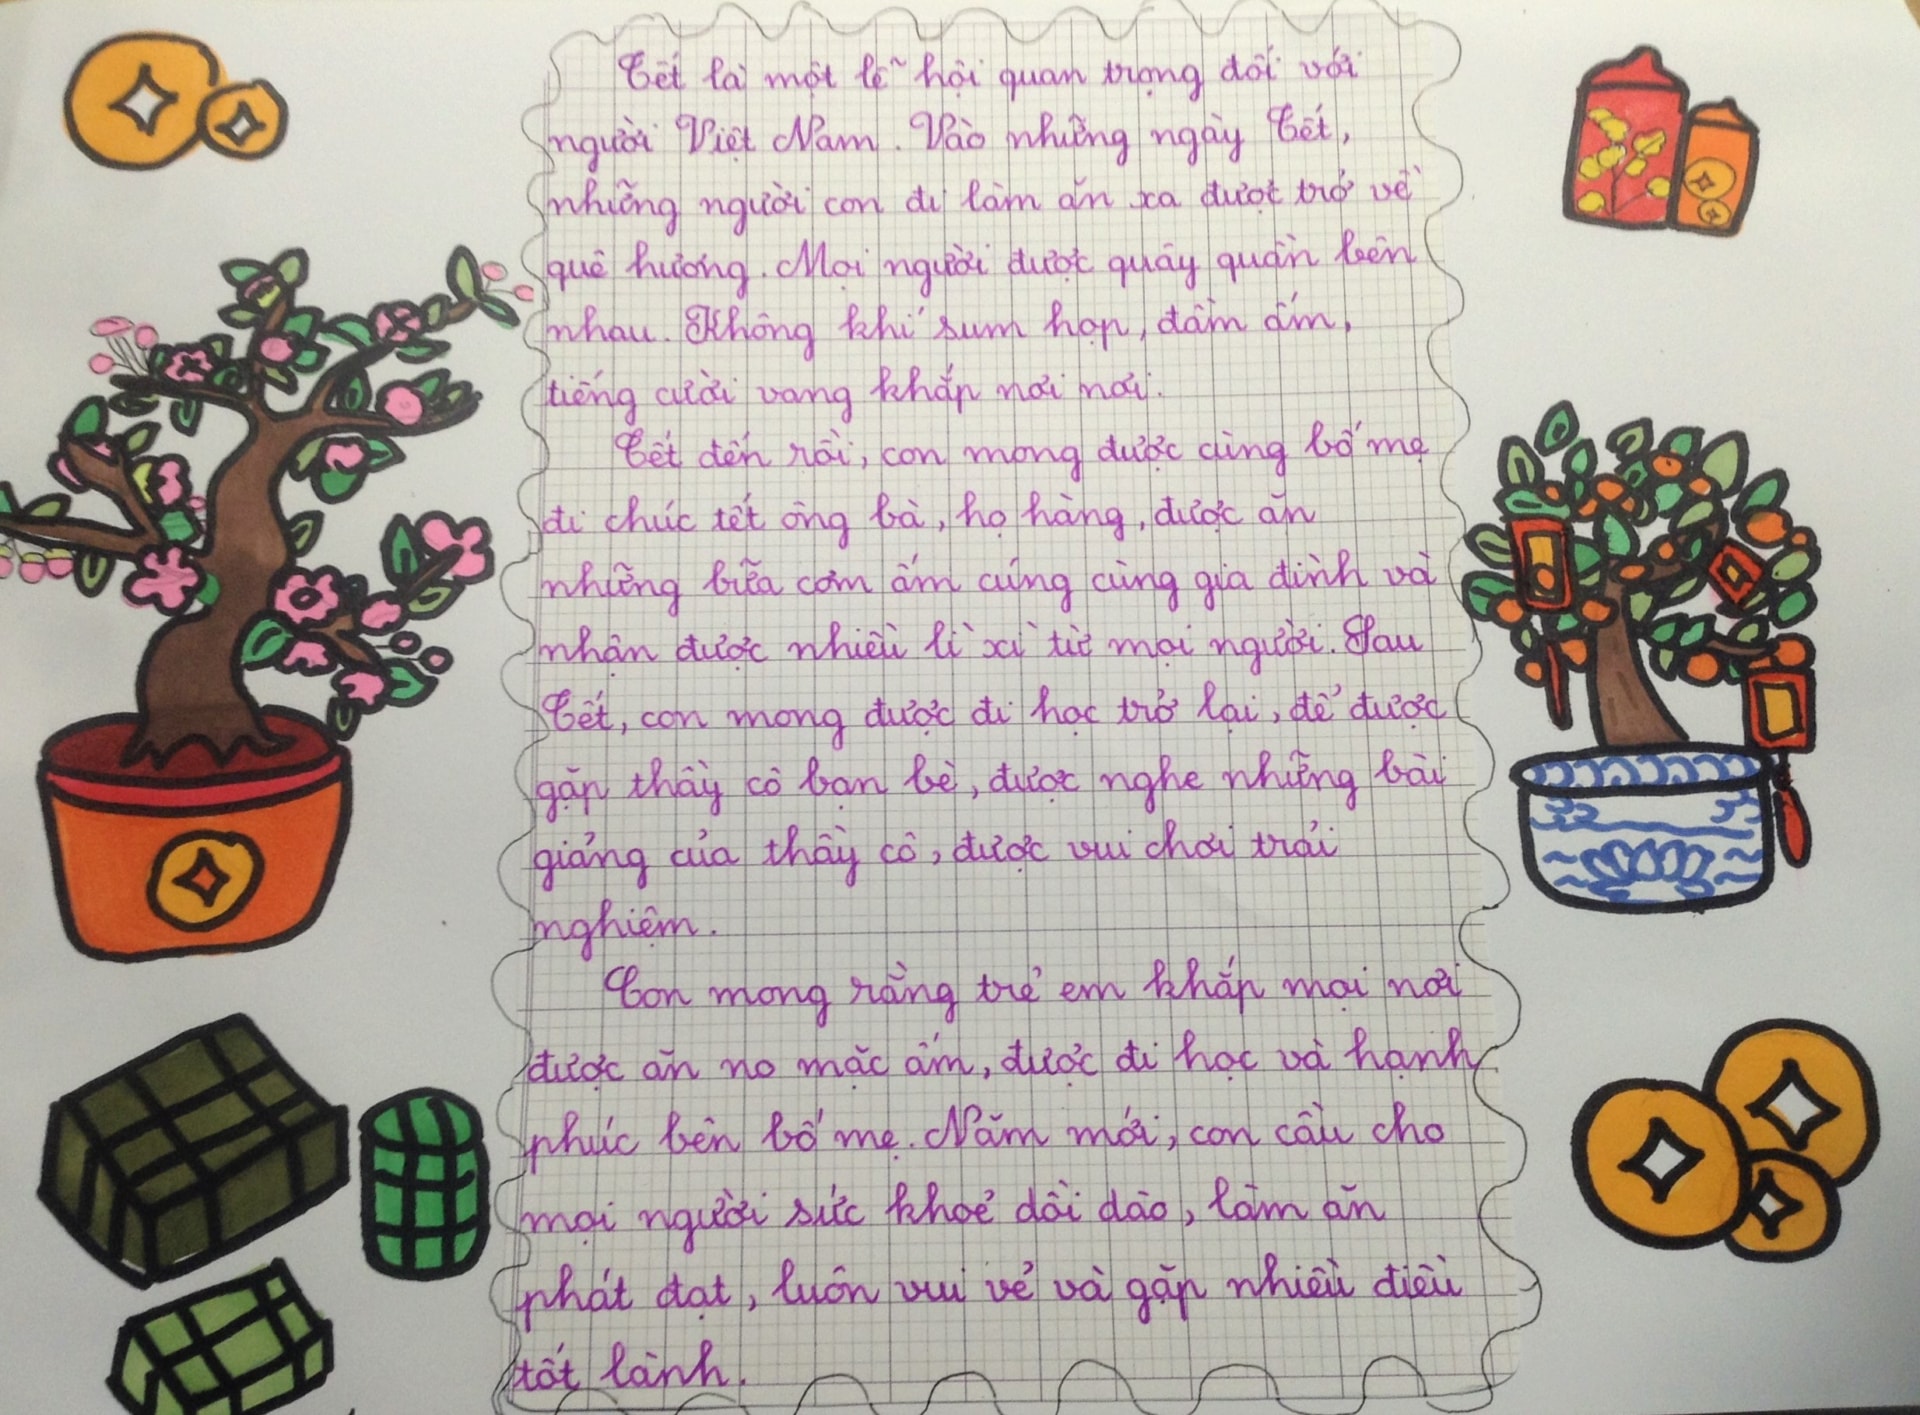 Tết là một lễ hội quan trọng đối với
người Việt Nam. Vào những ngày Tết,
những người con đi làm ăn xa được trở về
quê hương. Mọi người được quây quần bên
nhau. Không khí sum họp, đầm ấm,
tiếng cười vang khắp nơi nơi.
Tết đến rồi, con mong được cùng bố mẹ
đi chúc tết ông bà, họ hàng, được ăn
những bữa cơm ấm cúng cùng gia đình và
nhận được nhiều lì xì từ mọi người. Sau
Tết, con mong được đi học trở lại, để được
gặp thầy cô bạn bè, được nghe những bài
giảng của thầy cô, được vui chơi trải
nghiệm.
Con mong rằng trẻ em khắp mọi nơi
được ăn no mặc ấm, được đi học và hạnh
phúc bên bố mẹ. Năm mới, con cầu cho
mọi người sức khoẻ dồi dào, làm ăn
phát đạt, luôn vui vẻ và gặp nhiều điều
tốt lành.